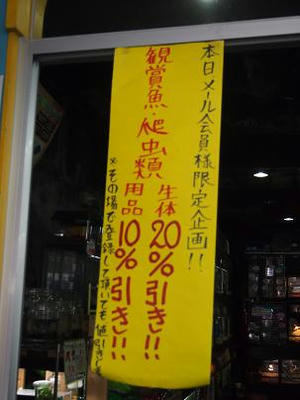 本日メール会員様限定企画!!
観賞魚・爬虫類
生体20%引き!!
用品10%引き!!
※その場で登録して頂いても値引きしま